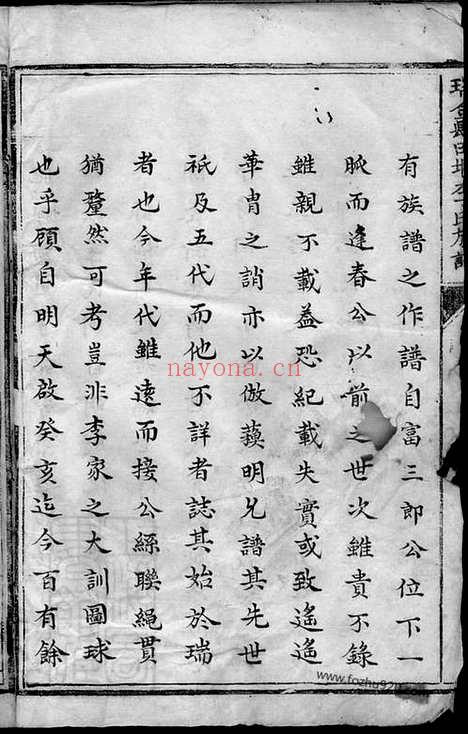 有族譜之作譜自富三郎公位下一
脈而逢春公以前之世次雖貴不錄
雖親不載益恐紀載失實或致遙遙
華胄之誚亦以倣蘐明兄譜其先世
祇及五代而他不詳者誌其始於瑞
者也今年代雖遠而接公緜聯繩貫
猶釐然可考豈非李家之大訓圖球
也乎顧自明天啟癸亥迄今百有餘
nayona.cn
www.fozhu920.com